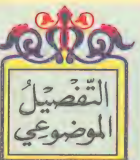 التَّفْصِيْلُ
الموْضُوعي